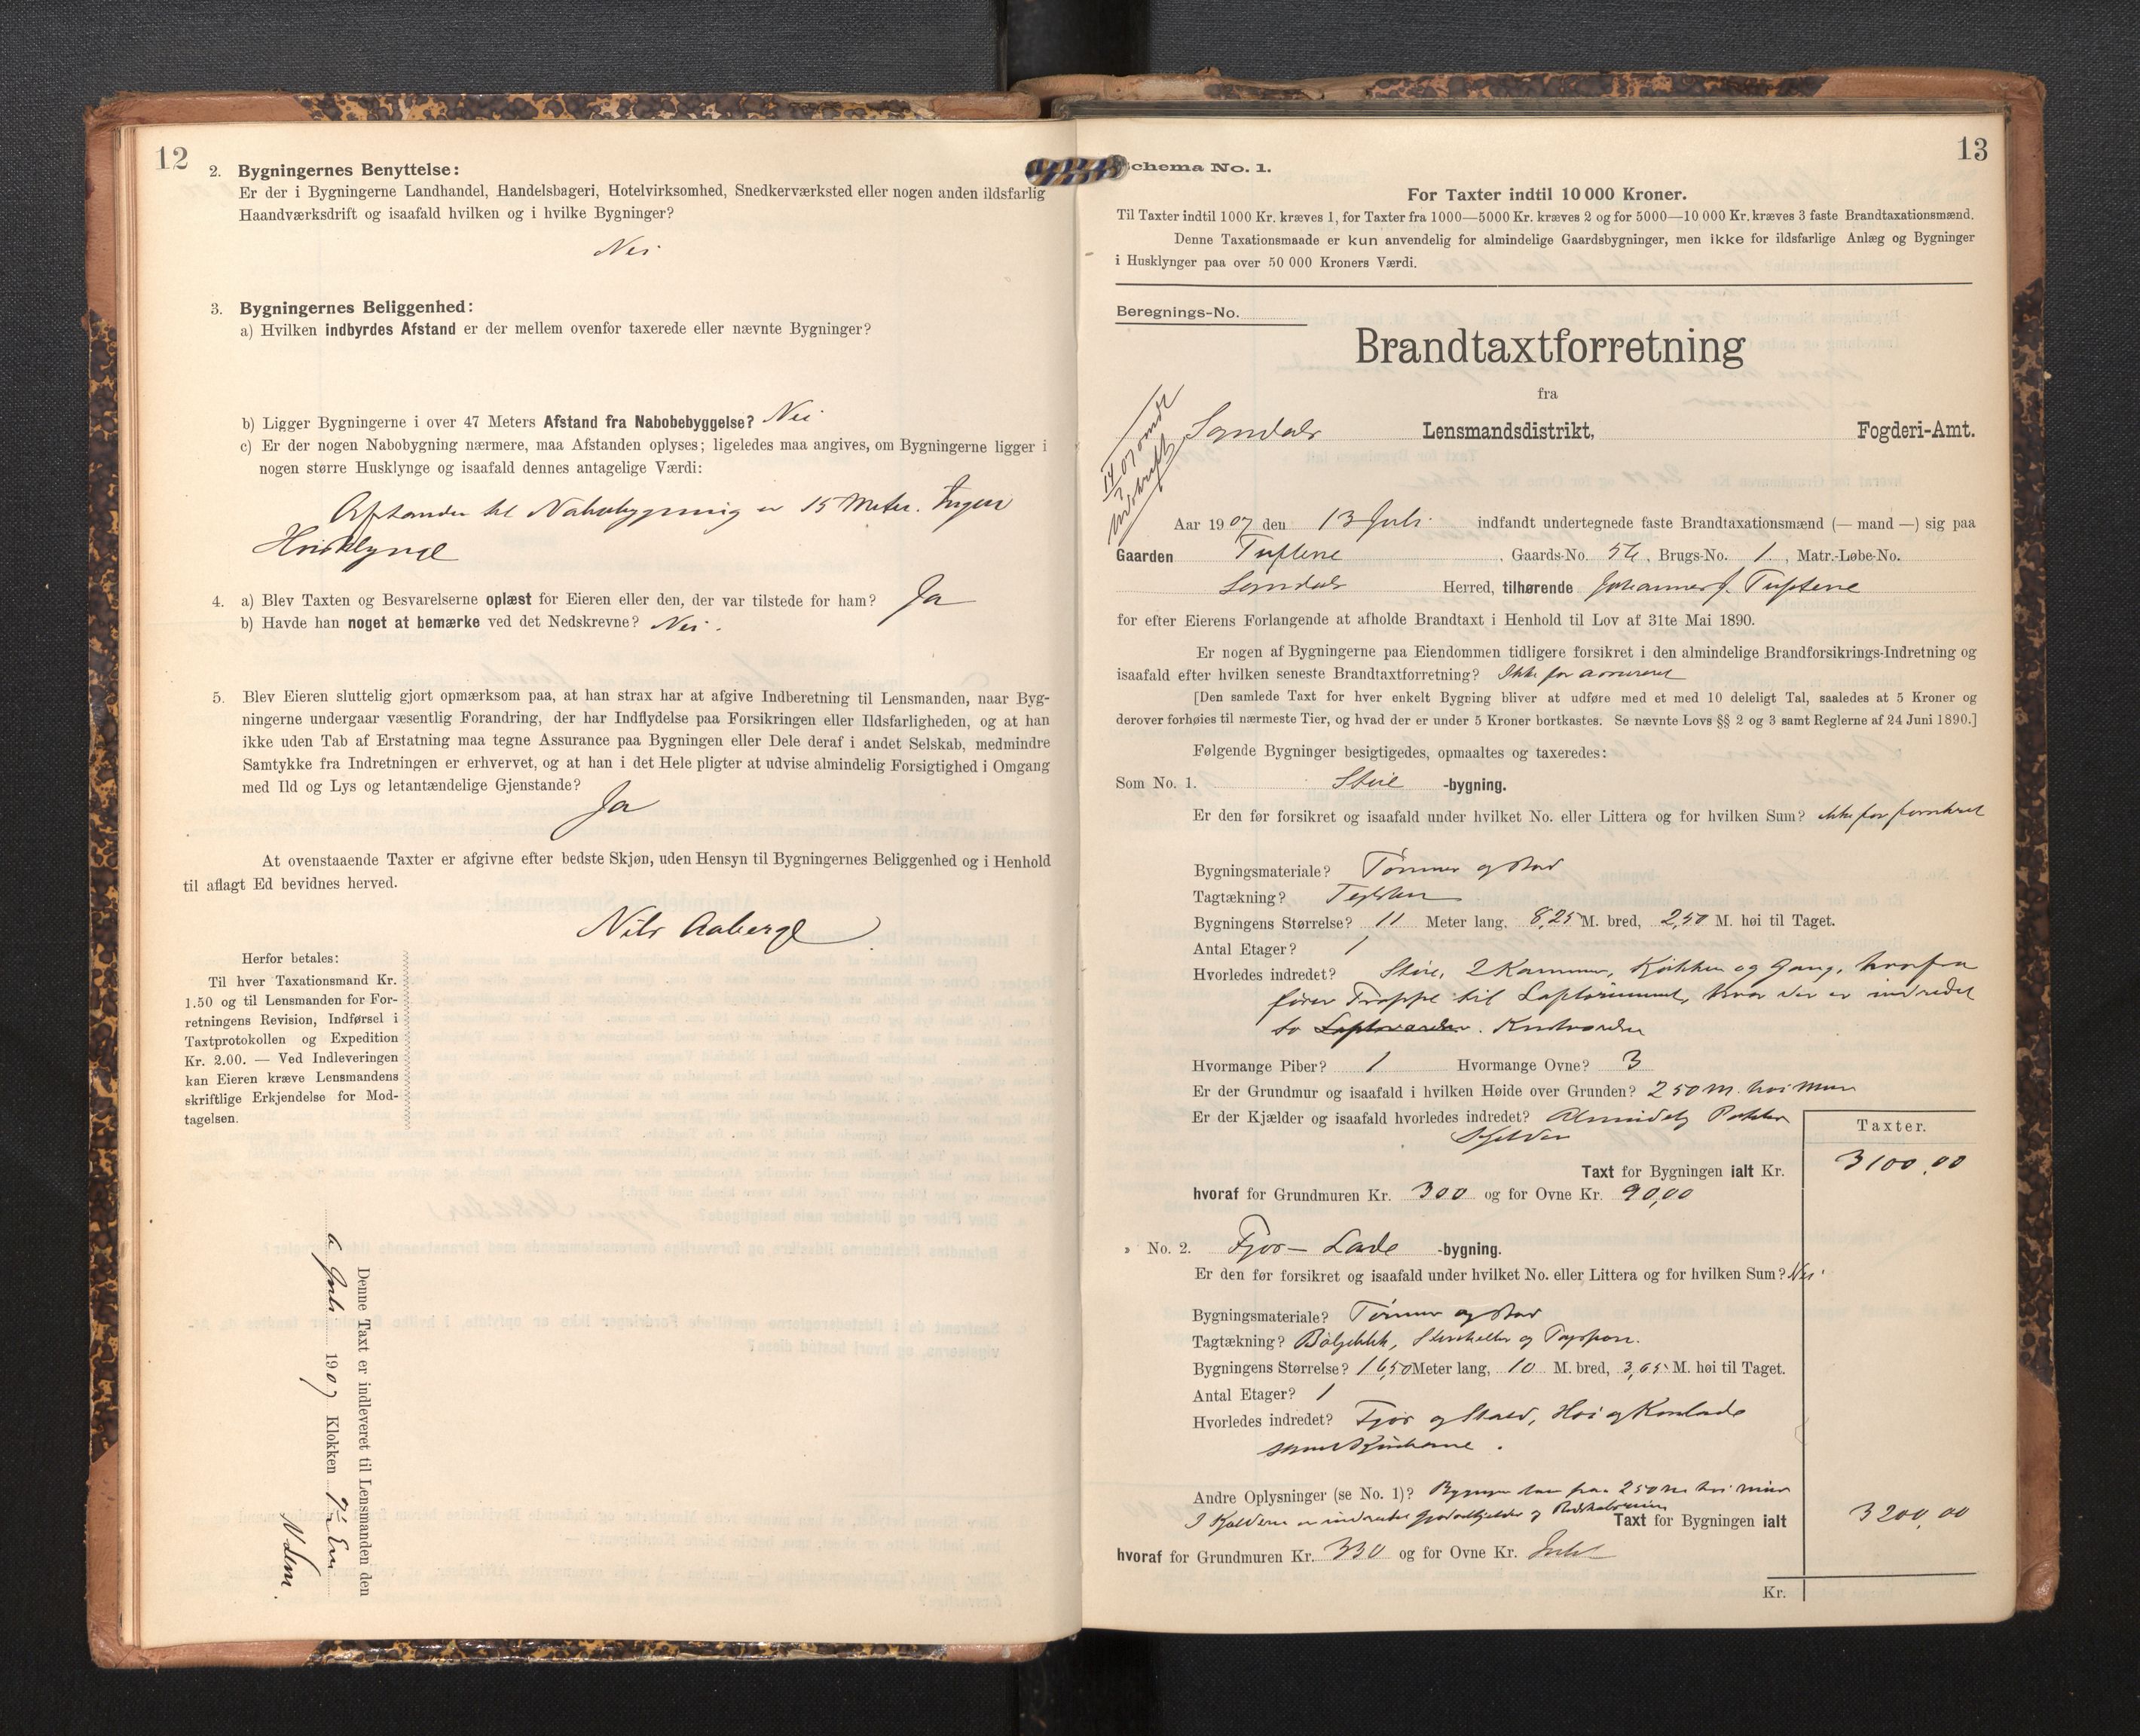 12
2. Bygningernes Benyttelse:
Er der i Bygningerne Landhandel, Handelsbageri, Hotelvirksomhed, Snedkerværksted eller nogen anden ildsfarlig
Haandværksdrift og isaafald hvilken og i hvilke Bygninger?
Nei
3. Bygningernes Beliggenhed:
a) Hvilken indbyrdes Afstand er der mellem ovenfor taxerede eller nævnte Bygninger?
b) Ligger Bygningerne i over 47 Meters Afstand fra Nabobebyggelse? Nei
c) Er der nogen Nabobygning nærmere, maa Afstanden oplyses; ligeledes maa angives, om Bygningerne ligger i
nogen større Husklynge og isaafald dennes antagelige Værdi:
Afstanden til Nabobygning er 15 Meter. Ingen
Husklynge
4. a) Blev Taxten og Besvarelserne oplæst for Eieren eller den, der var tilstede for ham? Ja
b) Havde han noget at bemærke ved det Nedskrevne? Nei.
5. Blev Eieren sluttelig gjort opmærksom paa, at han strax har at afgive Indberetning til Lensmanden, naar Byg-
ningerne undergaar væsentlig Forandring, der har Indflydelse paa Forsikringen eller Ildsfarligheden, og at han
ikke uden Tab af Erstatning maa tegne Assurance paa Bygningen eller Dele deraf i andet Selskab, medmindre
Samtykke fra Indretningen er erhvervet, og at han i det Hele pligter at udvise almindelig Forsigtighed i Omgang
med Ild og Lys og letantændelige Gjenstande?
Ja
At ovenstaaende Taxter er afgivne efter bedste Skjøn, uden Hensyn til Bygningernes Beliggenhed og i Henhold
til aflagt Ed bevidnes herved.
Nils Aaberge
Herfor betales:
Til hver Taxationsmand Kr.
1.50 og til Lensmanden for For-
retningens Revision, Indførsel i
Taxtprotokollen og Expedition
Kr. 2.00. — Ved Indleveringen
kan Eieren kræve Lensmandens
skriftlige Erkjendelse for Mod-
tagelsen.
Denne Taxt er indleveret til Lensmanden den
6 Juli 1907 Klokken 7 Em
13
Schema No. 1.
For Taxter indtil 10 000 Kroner.
Til Taxter indtil 1000 Kr. kræves 1, for Taxter fra 1000—5000 Kr. kræves 2 og for 5000—10 000 Kr. kræves 3 faste Brandtaxationsmænd.
Denne Taxationsmaade er kun anvendelig for almindelige Gaardsbygninger, men ikke for ildsfarlige Anlæg og Bygninger
i Husklynger paa over 50 000 Kroners Værdi.
Beregnings-No.
Brandtaxtforretning
fra
Sogndals Lensmandsdistrikt, Fogderi-Amt.
Aar 1907 den 13 Juli indfandt undertegnede faste Brandtaxationsmænd (— mand —) sig paa
Gaarden Tuftene, Gaards-No. 56, Brugs-No. 1, Matr.-Løbe-No.
Sogndals Herred, tilhørende Johannes J. Tuftene
for efter Eierens Forlangende at afholde Brandtaxt i Henhold til Lov af 31te Mai 1890.
Er nogen af Bygningerne paa Eiendommen tidligere forsikret i den almindelige Brandforsikrings-Indretning og
isaafald efter hvilken seneste Brandtaxtforretning? Ikke før assureret
[Den samlede Taxt for hver enkelt Bygning bliver at udføre med et med 10 deleligt Tal, saaledes at 5 Kroner og
derover forhøies til nærmeste Tier, og hvad der er under 5 Kroner bortkastes. Se nævnte Lovs §§ 2 og 3 samt Reglerne af 24 Juni 1890.]
Følgende Bygninger besigtigedes, opmaaltes og taxeredes:
Som No. 1. Stue -bygning.
Er den før forsikret og isaafald under hvilket No. eller Littera og for hvilken Sum? ikke før forsikret
Bygningsmateriale? Tømmer og Bord
Tagtækning? Teglsten
Bygningens Størrelse? 11 Meter lang, 8,25 M. bred, 2,50 M. høi til Taget.
Antal Etager? 1
Hvorledes indredet? Stue, 2 Kammer, Køkken og Gang, hvorfra
fører Trappe til Loftsrummet, hvor der er indredet
to Loftsværelse. Kvistværelser
Hvormange Piber? 1 Hvormange Ovne? 3
Er der Grundmur og isaafald i hvilken Høide over Grunden? 2 50 M. høi Mur
Er der Kjælder og isaafald hvorledes indredet? Almindelig Potet
Kjelder
Taxter.
Taxt for Bygningen ialt Kr. 3100,00
hvoraf for Grundmuren Kr. 300 og for Ovne Kr. 90,00
» No. 2. Fjos- Lade -bygning.
Er den før forsikret og isaafald under hvilket No. eller Littera og for hvilken Sum? Nei
Bygningsmateriale? Tømmer og Bord
Tagtækning? Bølgeblik, Stenheller og Tagspon.
Bygningens Størrelse? 16,50 Meter lang, 10 M. bred, 3,65 M. høi til Taget.
Antal Etager? 1
Hvorledes indredet? Fjos og Stald, Høi og Kornlade
samt
Andre Oplysninger (se No. 1)? Bygningen staar paa 2 50 m høi mur
I Kjelderen er indredet Gjødselkjelder og Redskabsrum
Taxt for Bygningen ialt 3200,00
hvoraf for Grundmuren Kr. 330 og for Ovne Kr. Intet
Kr.